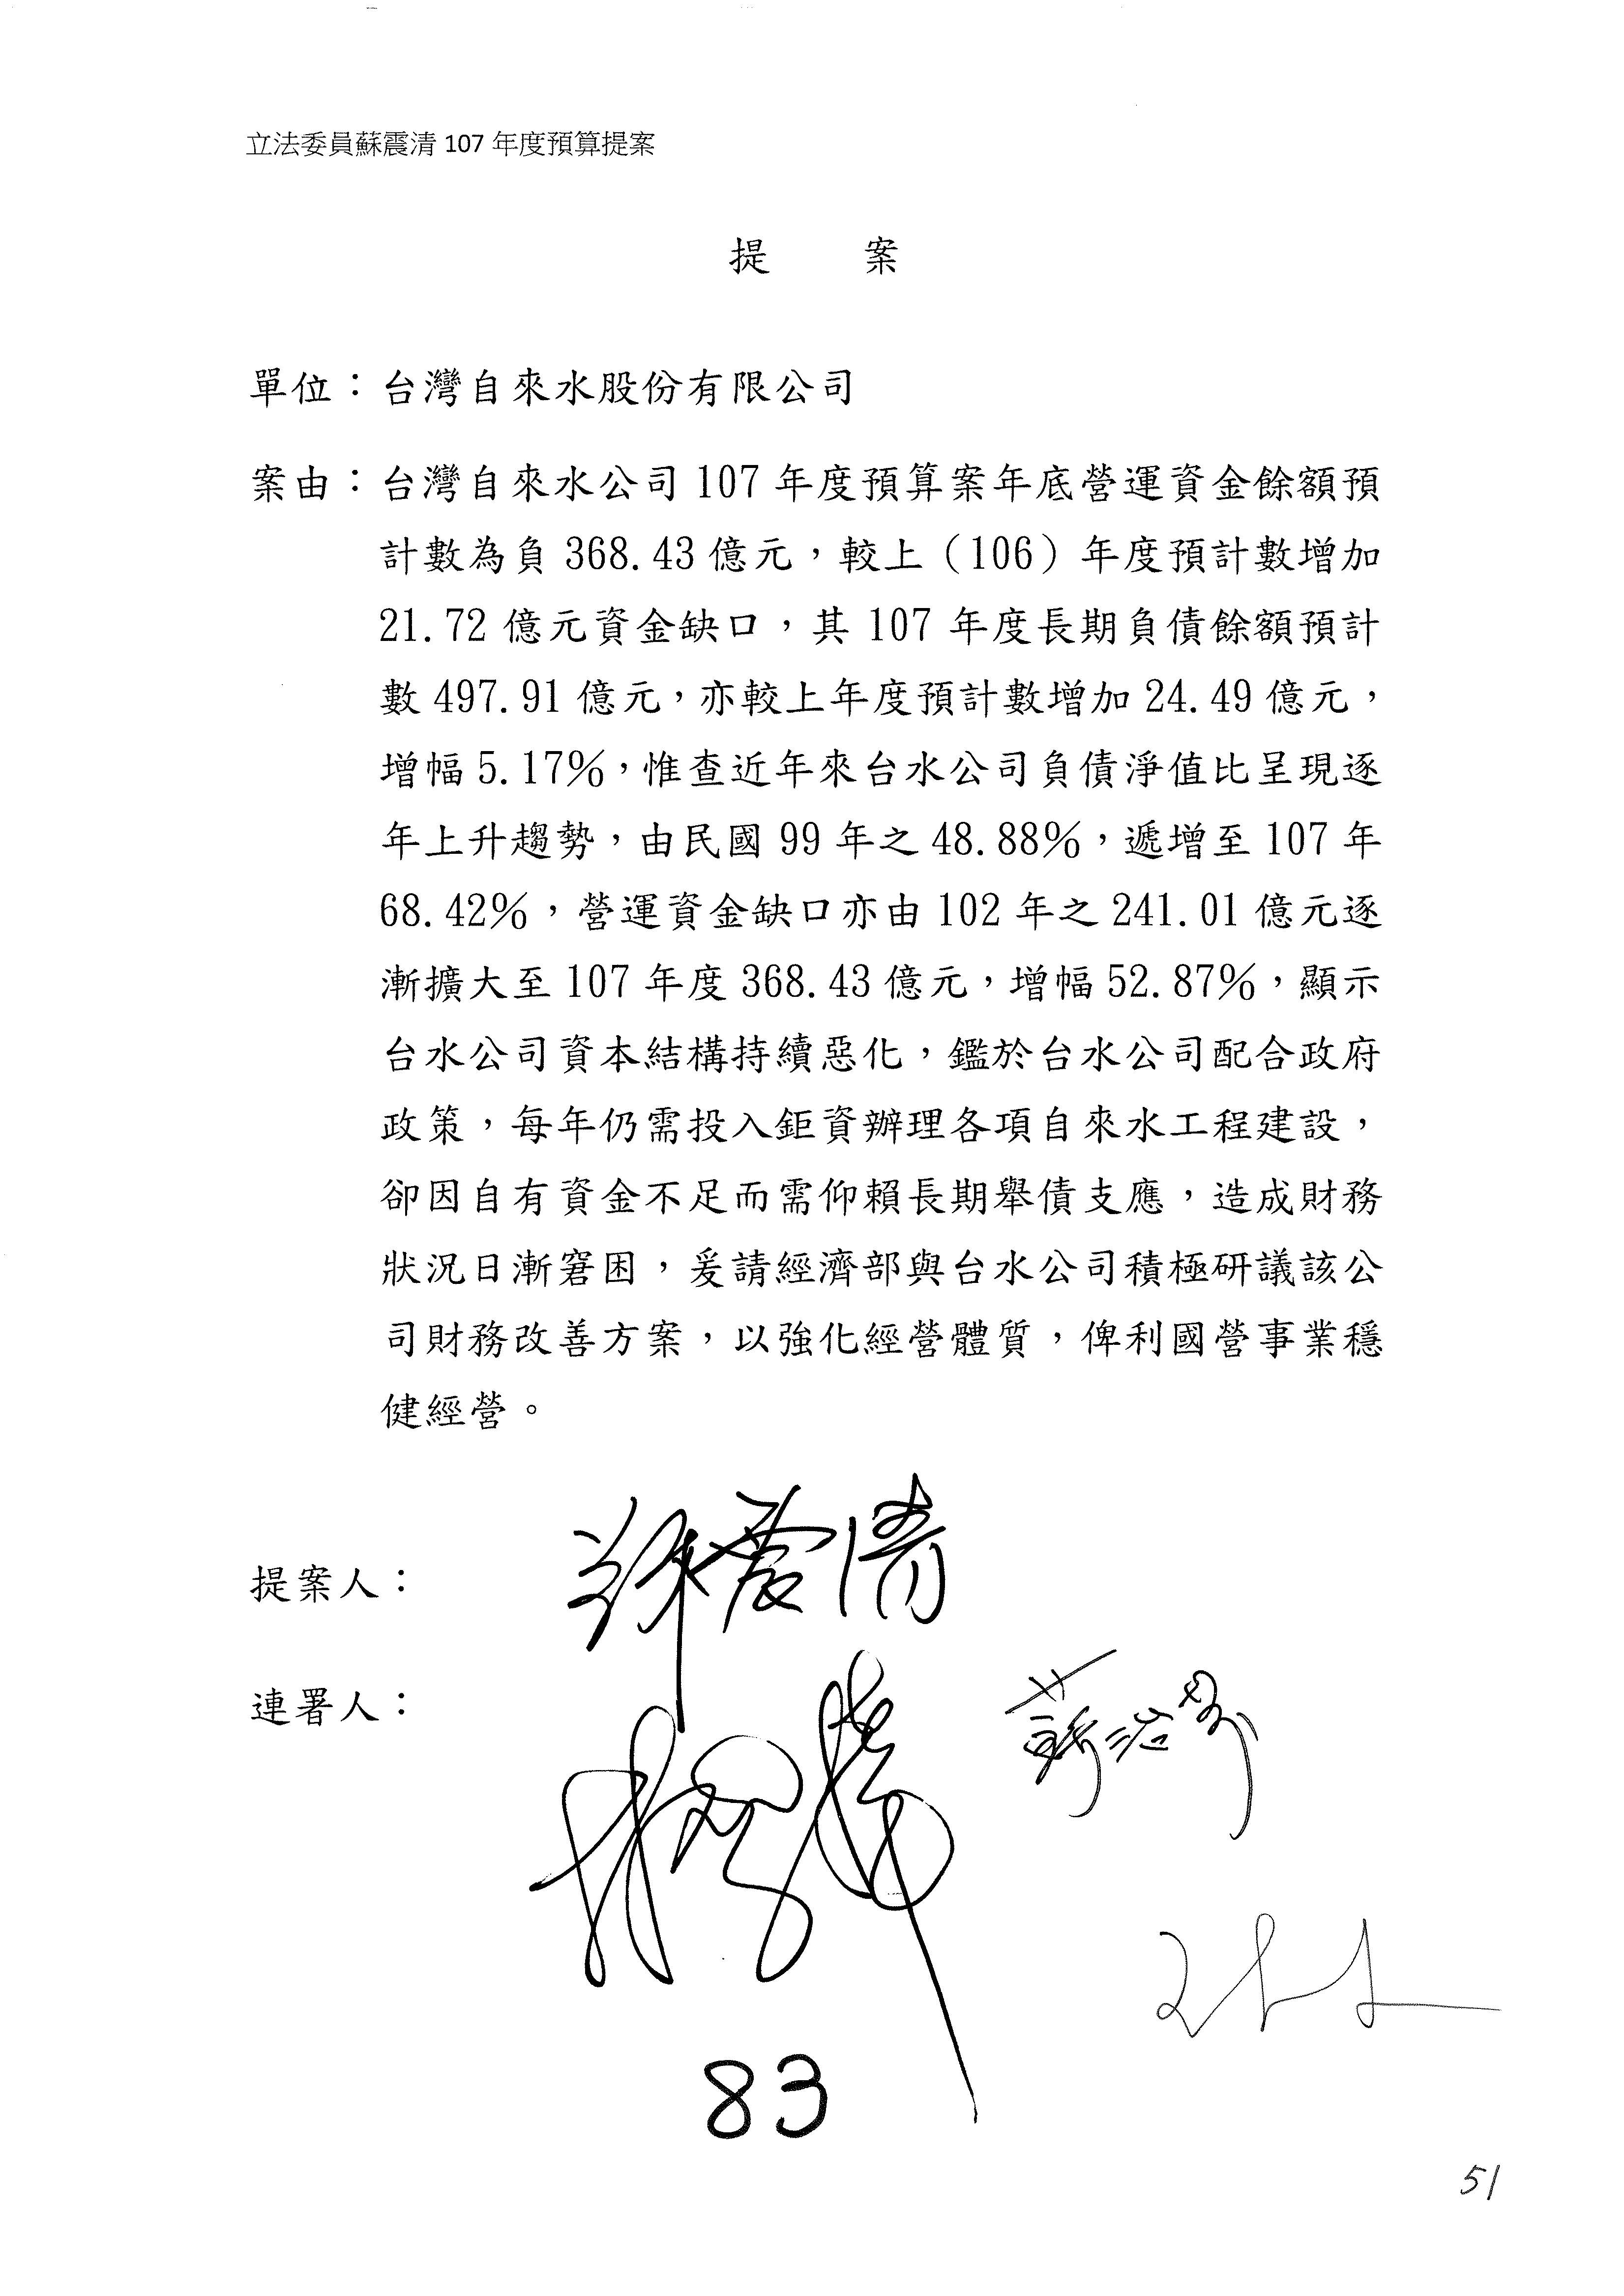 立法委員蘇震清 107 年度預算提案
提 案
單位：台灣自來水股份有限公司
案由：台灣自來水公司 107 年度預算案年底營運資金餘額預
計數為負 368.43 億元，較上（106）年度預計數增加
21.72 億元資金缺口，其 107 年度長期負債餘額預計
數 497.91 億元，亦較上年度預計數增加 24.49 億元，
增幅 5.17%，惟查近年來台水公司負債淨值比呈現逐
年上升趨勢，由民國 99 年之 48.88%，遞增至 107 年
68.42%，營運資金缺口亦由 102 年之 241.01 億元逐
漸擴大至 107 年度 368.43 億元，增幅 52.87%，顯示
台水公司資本結構持續惡化，鑑於台水公司配合政府
政策，每年仍需投入鉅資辦理各項自來水工程建設，
卻因自有資金不足而需仰賴長期舉債支應，造成財務
狀況日漸窘困，爰請經濟部與台水公司積極研議該公
司財務改善方案，以強化經營體質，俾利國營事業穩
健經營。
提案人： 蘇震清
連署人： 蘇治芬
83
51